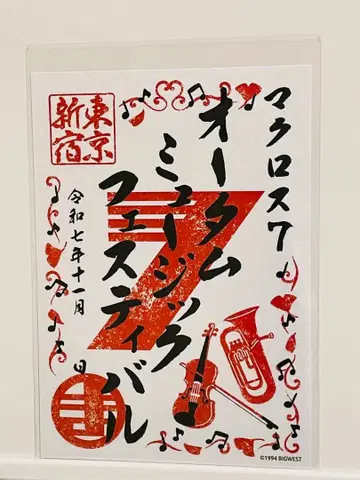 マクロス7
オータム
ミュージック
フェスティバル
東京
新宿
令和七年十一月
日
7
©1994 BIGWEST